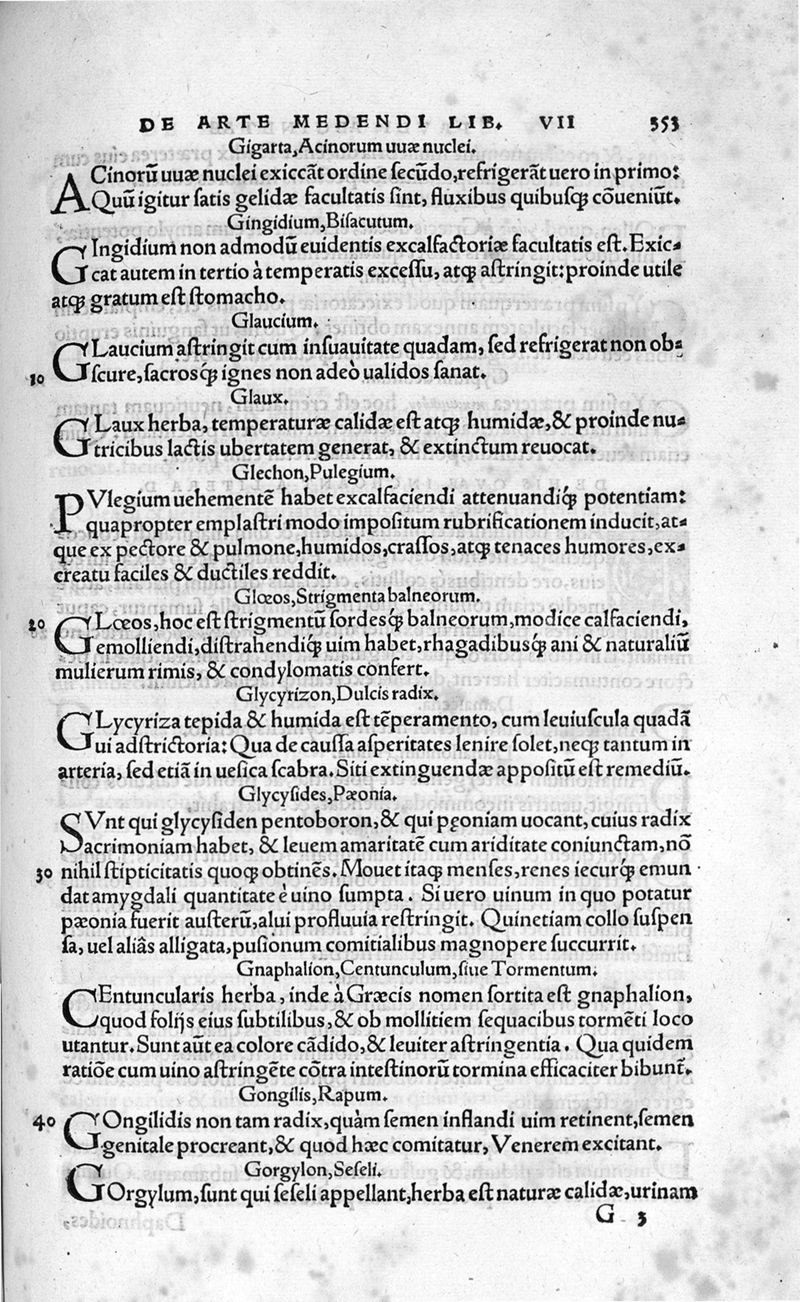 DE ARTE MEDENDI LIB. VII 353
Gigarta, Acinorum uuæ nuclei.
ACinorũ uuæ nuclei exiccãt ordine secũdo, refrigerãt uero in primo:
Quũ igitur satis gelidæ facultatis sint, fluxibus quibusq; cõueniũt.
Gingidium, Bisacutum.
GIngidium non admodũ euidentis excalfactoriæ facultatis est. Exic-
cat autem in tertio à temperatis excessu, atq; astringit: proinde utile
atq; gratum est stomacho.
Glaucium.
GLaucium astringit cum insuauitate quadam, sed refrigerat non ob-
10 scure, sacrosq́; ignes non adeò ualidos sanat.
Glaux.
GLaux herba, temperaturæ calidæ est atq; humidæ, & proinde nu-
tricibus lactis ubertatem generat, & extinctum reuocat.
Glechon, Pulegium.
PVlegium uehementẽ habet excalfaciendi attenuandiq́; potentiam:
quapropter emplastri modo impositum rubrificationem inducit, at-
que ex pectore & pulmone, humidos, crassos, atq; tenaces humores, ex-
creatu faciles & ductiles reddit.
Glœos, Strigmenta balneorum.
20 GLœos, hoc est strigmentũ sordesq́; balneorum, modice calfaciendi,
emolliendi, distrahendiq́; uim habet, rhagadibusq́; ani & naturaliũ
mulierum rimis, & condylomatis confert.
Glycyrizon, Dulcis radix.
GLycyriza tepida & humida est tẽperamento, cum leuiuscula quadã
ui adstrictoria: Qua de caussa asperitates lenire solet, neq; tantum in
arteria, sed etiã in uesica scabra. Siti extinguendæ appositũ est remediũ.
Glycysides, Pæonia.
SVnt qui glycysiden pentoboron, & qui pęoniam uocant, cuius radix
acrimoniam habet, & leuem amaritatẽ cum ariditate coniunctam, nõ
30 nihil stipticitatis quoq; obtinẽs. Mouet itaq; menses, renes iecurq́; emun
dat amygdali quantitate è uino sumpta. Si uero uinum in quo potatur
pæonia fuerit austerũ, alui profluuia restringit. Quinetiam collo suspen
sa, uel aliâs alligata, pusionum comitialibus magnopere succurrit.
Gnaphalion, Centunculum, siue Tormentum.
CEntuncularis herba, inde à Græcis nomen sortita est gnaphalion,
quod folijs eius subtilibus, & ob mollitiem sequacibus tormẽti loco
utantur. Sunt aũt ea colore cãdido, & leuiter astringentia. Qua quidem
ratiõe cum uino astringẽte cõtra intestinorũ tormina efficaciter bibunt̃.
Gongilis, Rapum.
40 GOngilidis non tam radix, quàm semen inflandi uim retinent, semen
genitale procreant, & quod hæc comitatur, Venerem excitant.
Gorgylon, Seseli.
GOrgylum, sunt qui seseli appellant, herba est naturæ calidæ, urinam
G 3